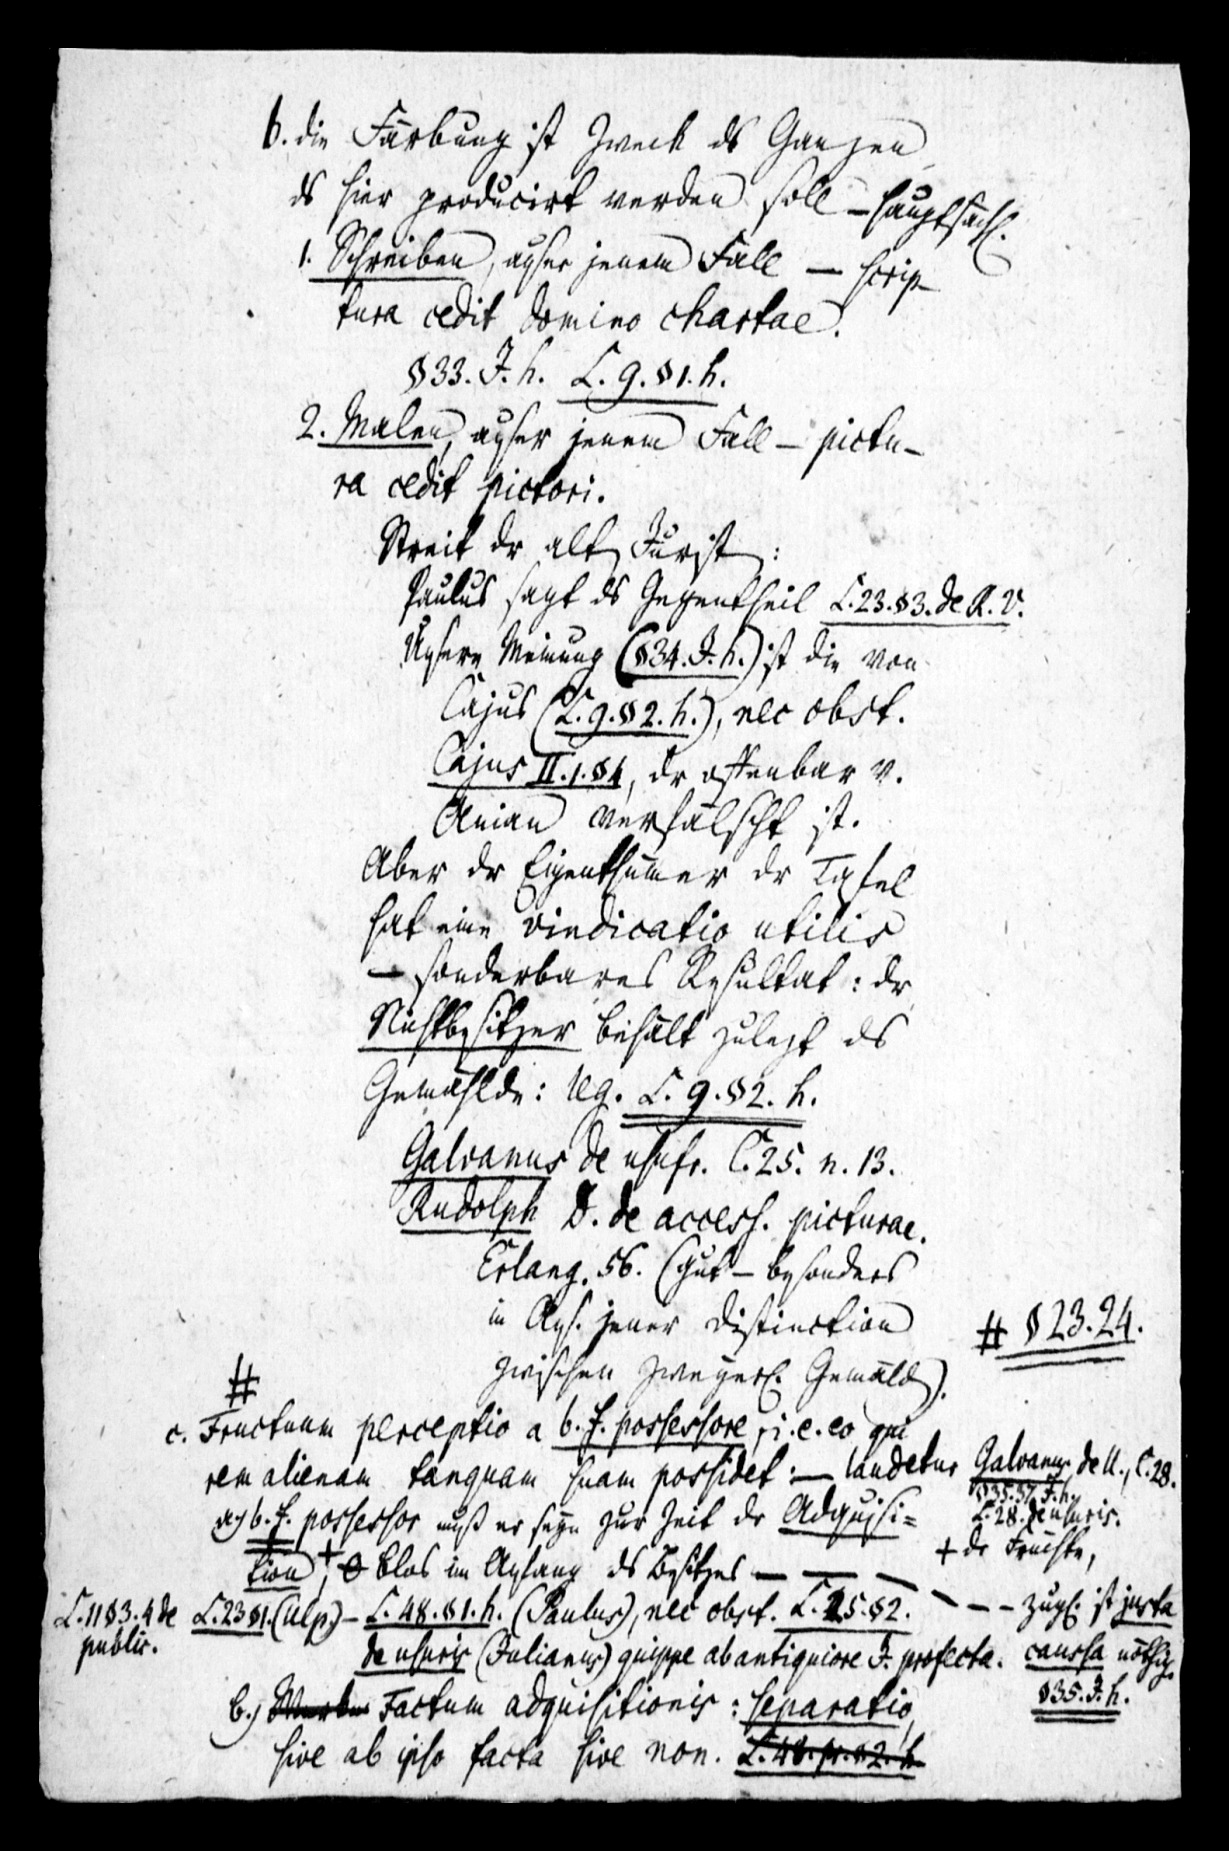 b. die Färbung ist Zweck ds Ganzen
ds hier producirt werden soll – hauptsächl.
1. Schreiben, ausser jenem Fall – scrip-
tura cedit domino chartae.
§ 33. J. h. L. 9. § 1. h.
2. Malen, ausser jenem Fall – pictu-
ra cedit pictori.
Streit dr alt Jurist:
Paulus sagt ds Gegentheil L. 23. § 3. de R. V.
Unsere Meinung (§ 34. J. h.) ist die von
Cajus (L. 9. § 2. h.), nec obst.
Cajus II. 1. § 4, dr offenbar v.
Anian verfälscht ist.
Aber dr Eigenthümer dr Tafel
hat eine vindicatio utilis
– sonderbares Resultat: dr
Nichtbesitzer behält zuletzt ds
Gemählde: L. 9. § 2. h.
Galvanus de usufr. C. 25. n. 13.
Rudolph D. de access. picturae.
Erlang. 56. (gut – besonders
in Ans. jener Distinction
zwischen zweyerl. Gemäld).
# § 23. 24.
#
c. Fructuum perceptio a b. f. possessore, i. e. eo qui
rem alienam tanquam suam possidet: – laudetur Galvanus de U., C. 28.
§ 35. 37. J. h.
L. 28. de usuris.
a) b. f. possessor muß er seyn zur Zeit dr Adquisi=
tion +, blos im Anfang ds Besitzes – – – – – –
+ dr Früchte,
zugl. ist justa
caussa nöthig.
§ 35. J. h.
L. 11 § 3. 4 de
public.
L. 23 § 1. (Ulp.) – L. 48. § 1. h. (Paulus), nec obst. L. 25. § 2.
de usuris (Julianus) quippe ab antiquiore J. profecta.
b.) Factum adquisitionis: separatio,
sive ab ipso facta sive non. L. 48. pr. § 2. h.